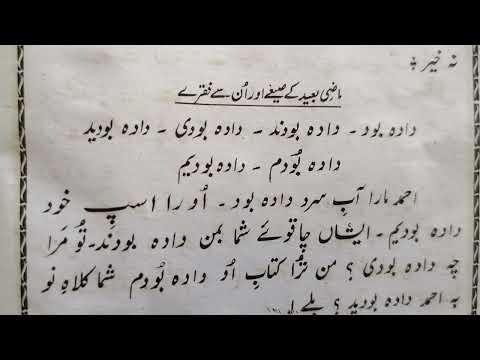 نہ خیر ؟
ماضی بعید کے صیغے اور اُن سے فقرے
داده بود - داده بودند - داده بودی - داده بودید
داده بُودم - داده بودیم
احمد مارا آبِ سرد داده بود - اُو را اسپِ خود
داده بودیم - ایشاں چاقوئے شما بمن داده بودند - تُو مَرا
چہ داده بودی ؟ من ترُا کتابِ اُو داده بُودم شما کلاهِ نو
بہ احمد داده بودید ؟ بلے